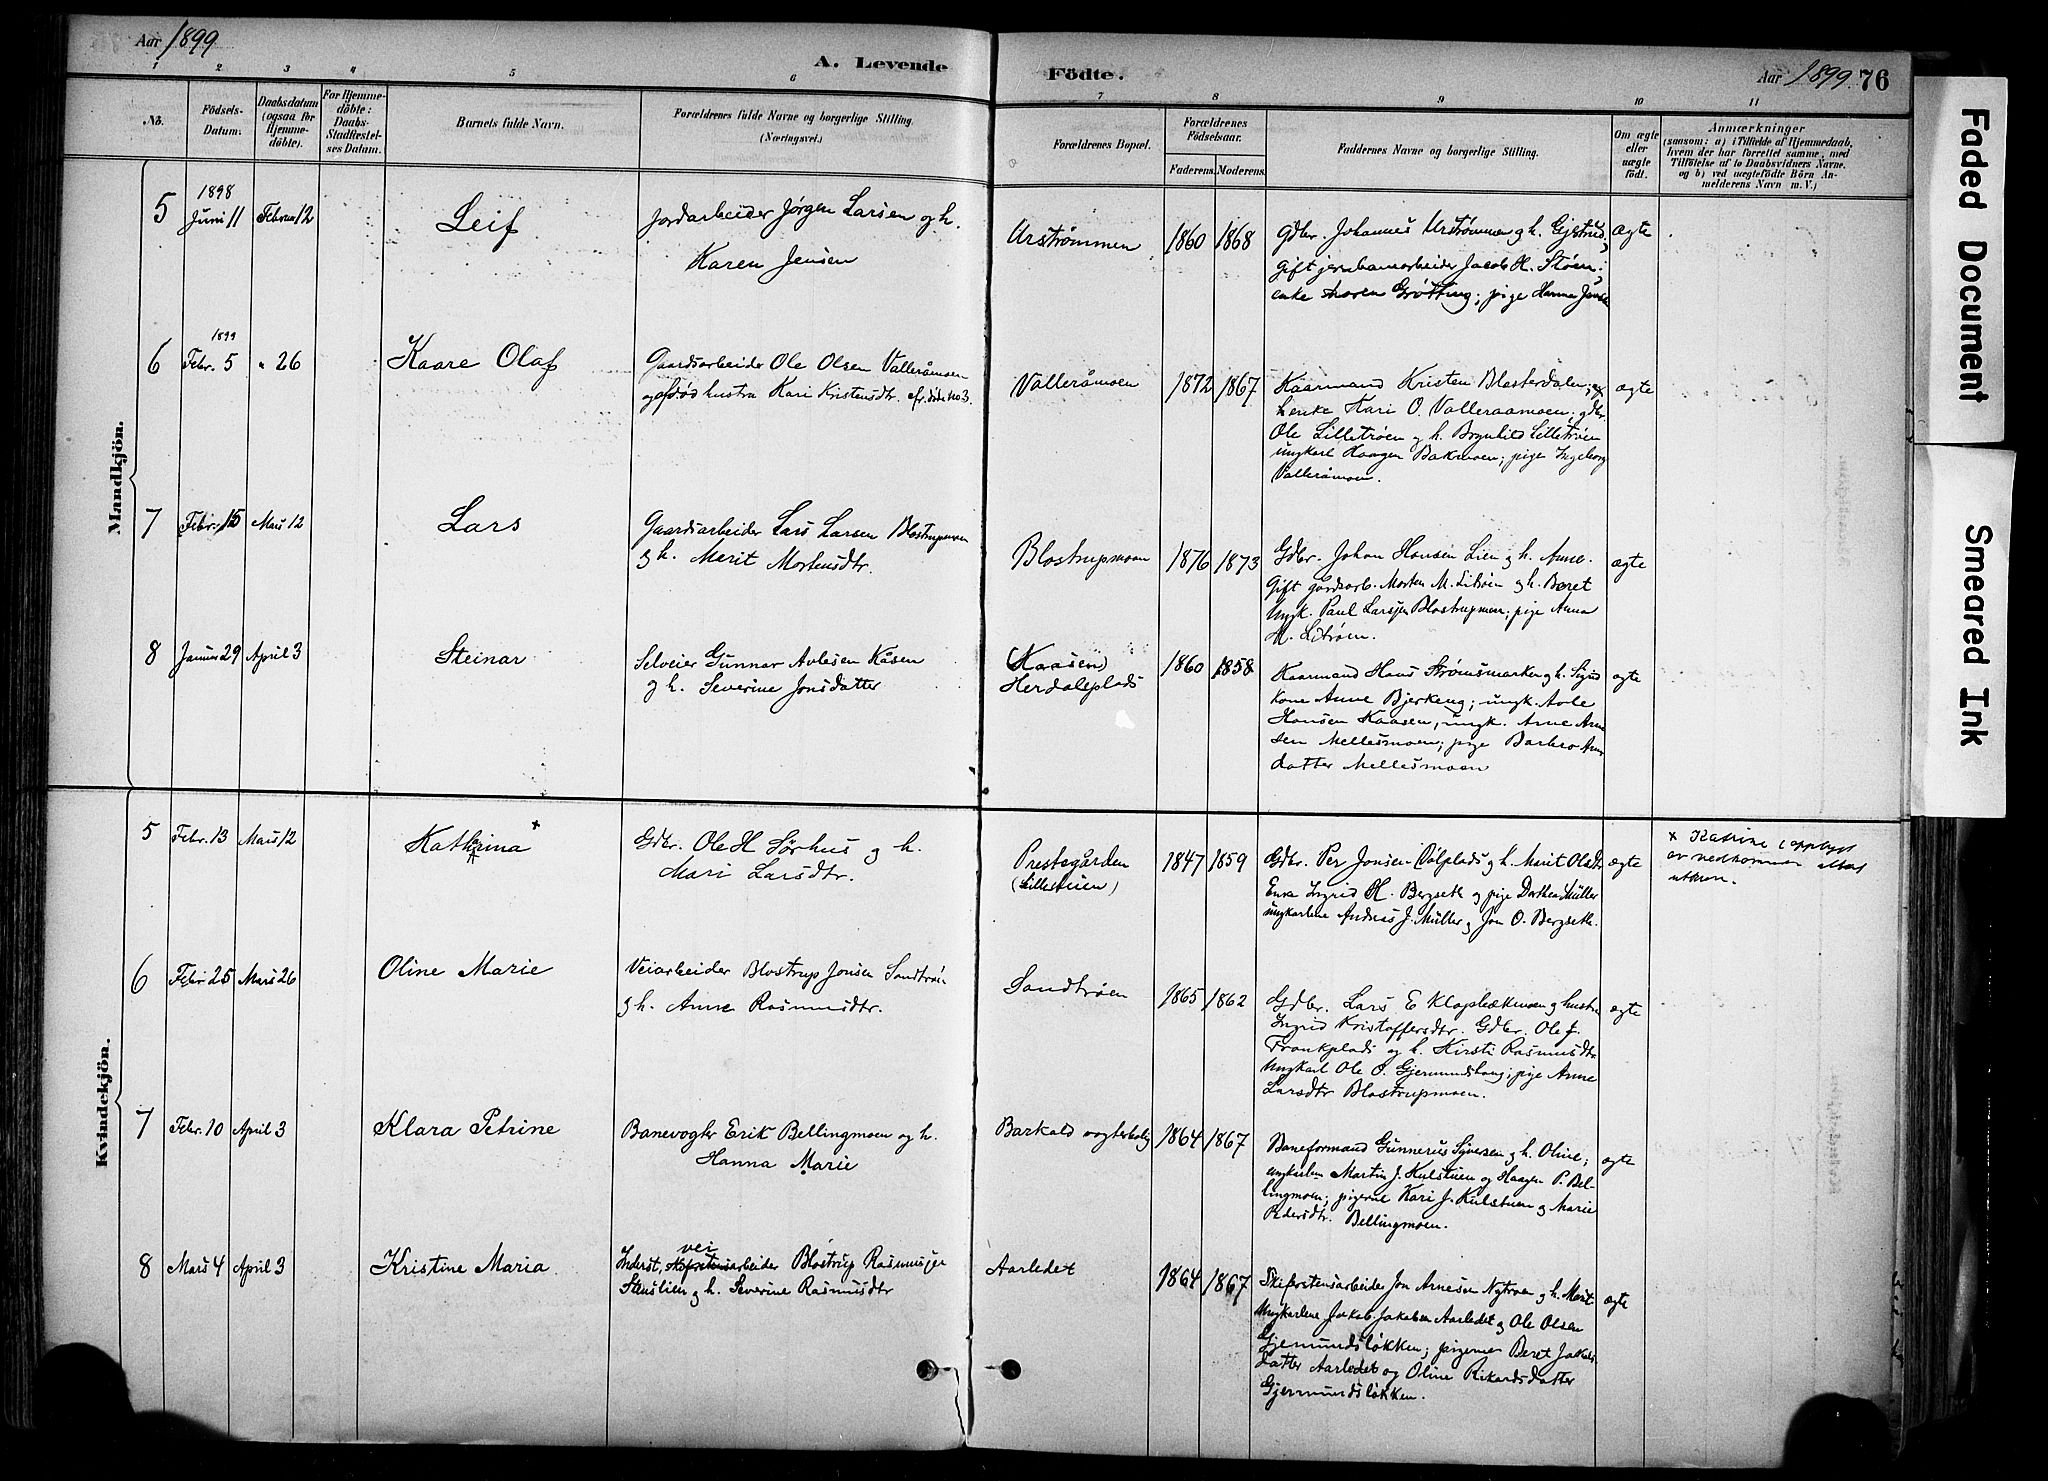 Aar 1899
A. Levende
Födte.
Aar 1899. 76
1 2 3 4 5 6 7 8 9 10 11
No.
Födsels-
Datum.
Daabsdatum
(ogsaa for
Hjemme-
döbte).
For Hjemme-
döbte:
Daabs-
Stadfæstel-
ses Datum.
Barnets fulde Navn.
Forældrenes fulde Navne og borgerlige Stilling.
(Næringsvei.)
Forældrenes Bopæl.
Forældrenes
Födselsaar.
Faderens. Moderens.
Faddernes Navne og borgerlige Stilling.
Om ægte
eller
uægte
födt.
Anmærkninger
(saasom: a) i Tilfælde af Hjemmedaab,
hvem der har forrettet samme, med
Tilföielse af to Daabsvidners Navne.
og b) ved uægtefödte Börn An-
melderens Navn m. V.)
Mandkjön.
5 1898 Juni 11 Februar 12 Leif Jordarbeider Jørgen Larsen og h.
Karen Jensen
Urstrømmen 1860 1868 Gdbr. Johannes Urstrømmen og h. Gjertrud, ægte
Gift jernbanearbeider Jacob H. Støen;
enke Maren Grøtting; pige Hanna
6 1899 Febr. 5 " 26 Kaare Olaf Gaardsarbeider Ole Olsen Valleråmoen
og hustru Kari Kristensdtr. cfr. døde no 3.
Valleråmoen 1872 1867 Kaarmand Kristen Blesterdalen; ægte
Kari O. Valleraamoen; gdbr.
Ole Lilletrøen og h. Brynhild Lilletrøen
ungkarl Haagen Bakmoen; pige Ingeborg
Valleråmoen.
7 Febr. 15 Mars 12 Lars Gaardsarbeider Lars Larsen Blostrupmoen
og h. Marit Mortensdtr.
Blostrupmoen 1876 1873 Gdbr. Johan Hansen Lien og h. Anne. ægte
Gift gårdsarb. Morten M. Litrøen og h. Beret
Ungk. Paul Larsen Blostrupmoen; pige Anna
M. Litrøen.
8 Januar 29 April 3 Steinar Selveier Gunnar Avlesen Kåsen
og h. Severine Jonsdatter
(Kaasen)
Herdalsplads 1860 1858 Kaarmand Hans Strømsmarken og h. Sigrid ægte
Kone Anne Bjerkeng; ungk. Avle
Hansen Kaasen; ungk. Arne Arne
sen Mellesmoen; pige Barbro Arne
datter Mellesmoen
Kvindekjön.
5 Febr. 13 Mars 12 Kathrina + Gdbr. Ole H Sørhus og h.
Mari Larsdtr.
Prestegården
(Lillestuen) 1847 1859 Gdbr. Per Jonsen Dølplads og h. Marit Olsdtr ægte
Enke Ingrid H. Bergseth og pige Dorthea Müller
ungkarlene Andreas J. Müller og Jon O. Bergseth.
+ Katrine i opplyst
av vedkommen
6 Febr 25 Mars 26 Oline Marie Veiarbeider Blostrup Jonsen Sandtrøen
og h. Anne Rasmusdtr.
Sandtrøen 1865 1862 Gdbr. Lars E Klapbækmoen og hustru ægte
Ingrid Kristoffersdtr. Gdbr. Ole J.
Tronkplads og h. Kirsti Rasmusdtr
Ungkarl Ole O. Gjermundshaug; pige Anne
Larsdtr Blostrupmoen.
7 Febr. 10 April 3 Klara Petrine Banevogter Erik Bellingmoen og h.
Hanna Marie
Barkald vogterbolig 1864 1867 Baneformand Gunnerius Syversen og h. Oline; ægte
ungkarlene Martin J. Kulstuen og Haagen P. Bel-
lingmoen; pigerne Kari J. Kulstuen og Marie
Pedersdtr. Bellingmoen.
8 Mars 4 April 3 Kristine Maria Inderst, veiarbeider Blostrup Rasmussen
Stenslien og h. Severine Rasmusdtr
Aarledet 1864 1867 Skifertensarbeider Jon Arnesen Nytrøen og h. Marit ægte
Ungkarlene Jakob Jakobsen Aarledet og Ole Olsen
Gjermundsløkken; pigerne Beret Jakobs
datter Aarledet og Oline Rikardsdatter
Gjermundsløkken.
Faded Document
Smeared Ink